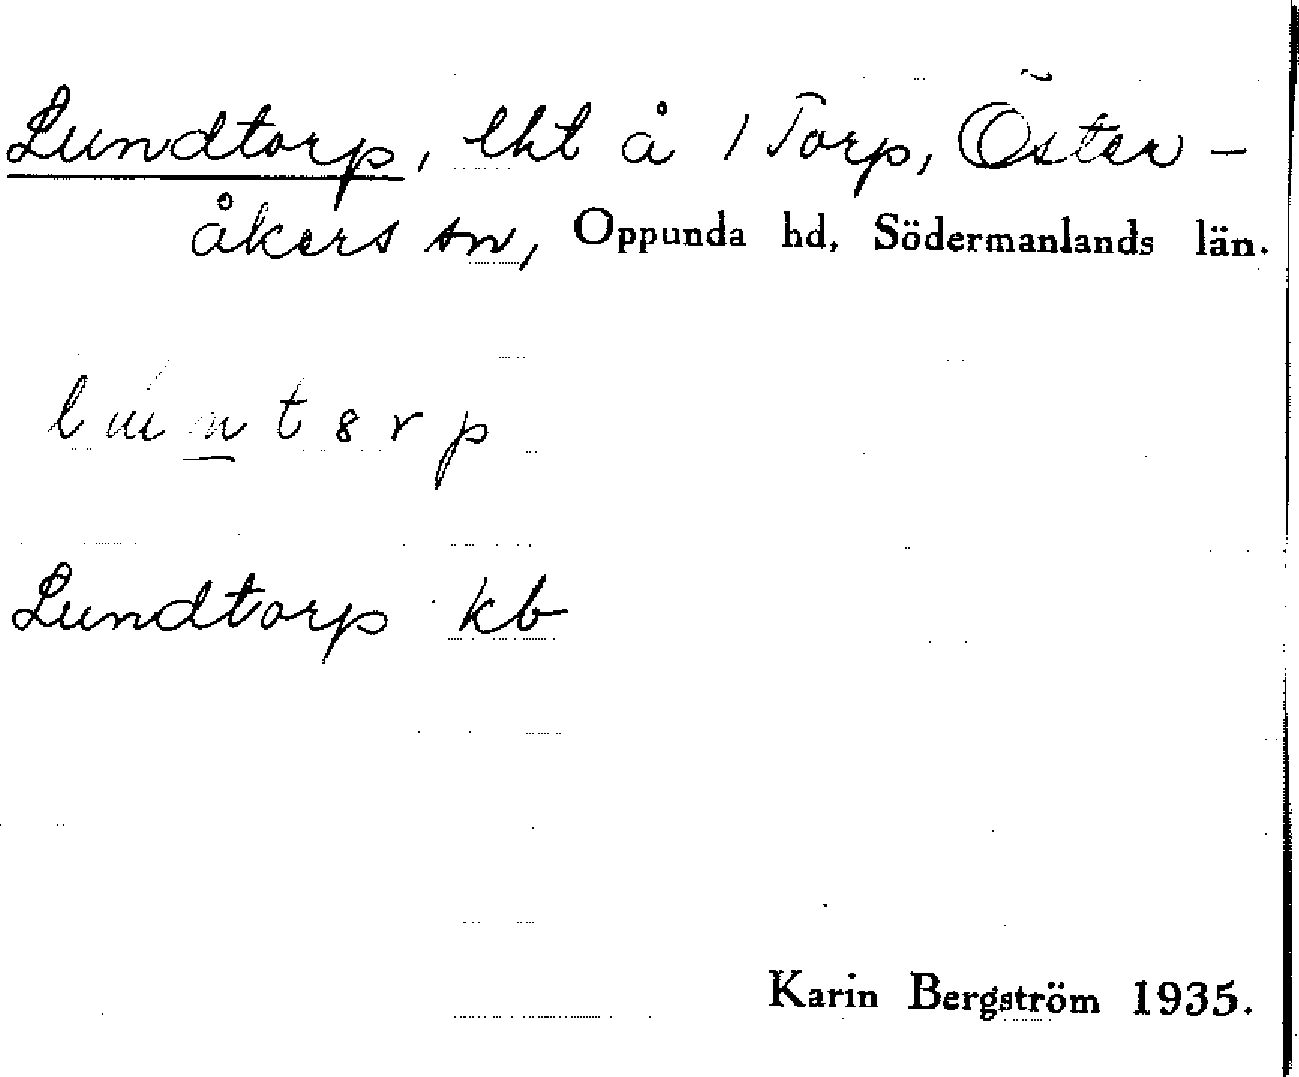 Lundtorp, lht å 1 Torp, Öster-
åkers sn, Oppunda hd, Södermanlands län.
Lundtorp kb
Karin Bergström 1935.